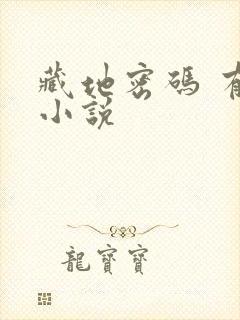 藏地密碼 有
小說
龍寶寶